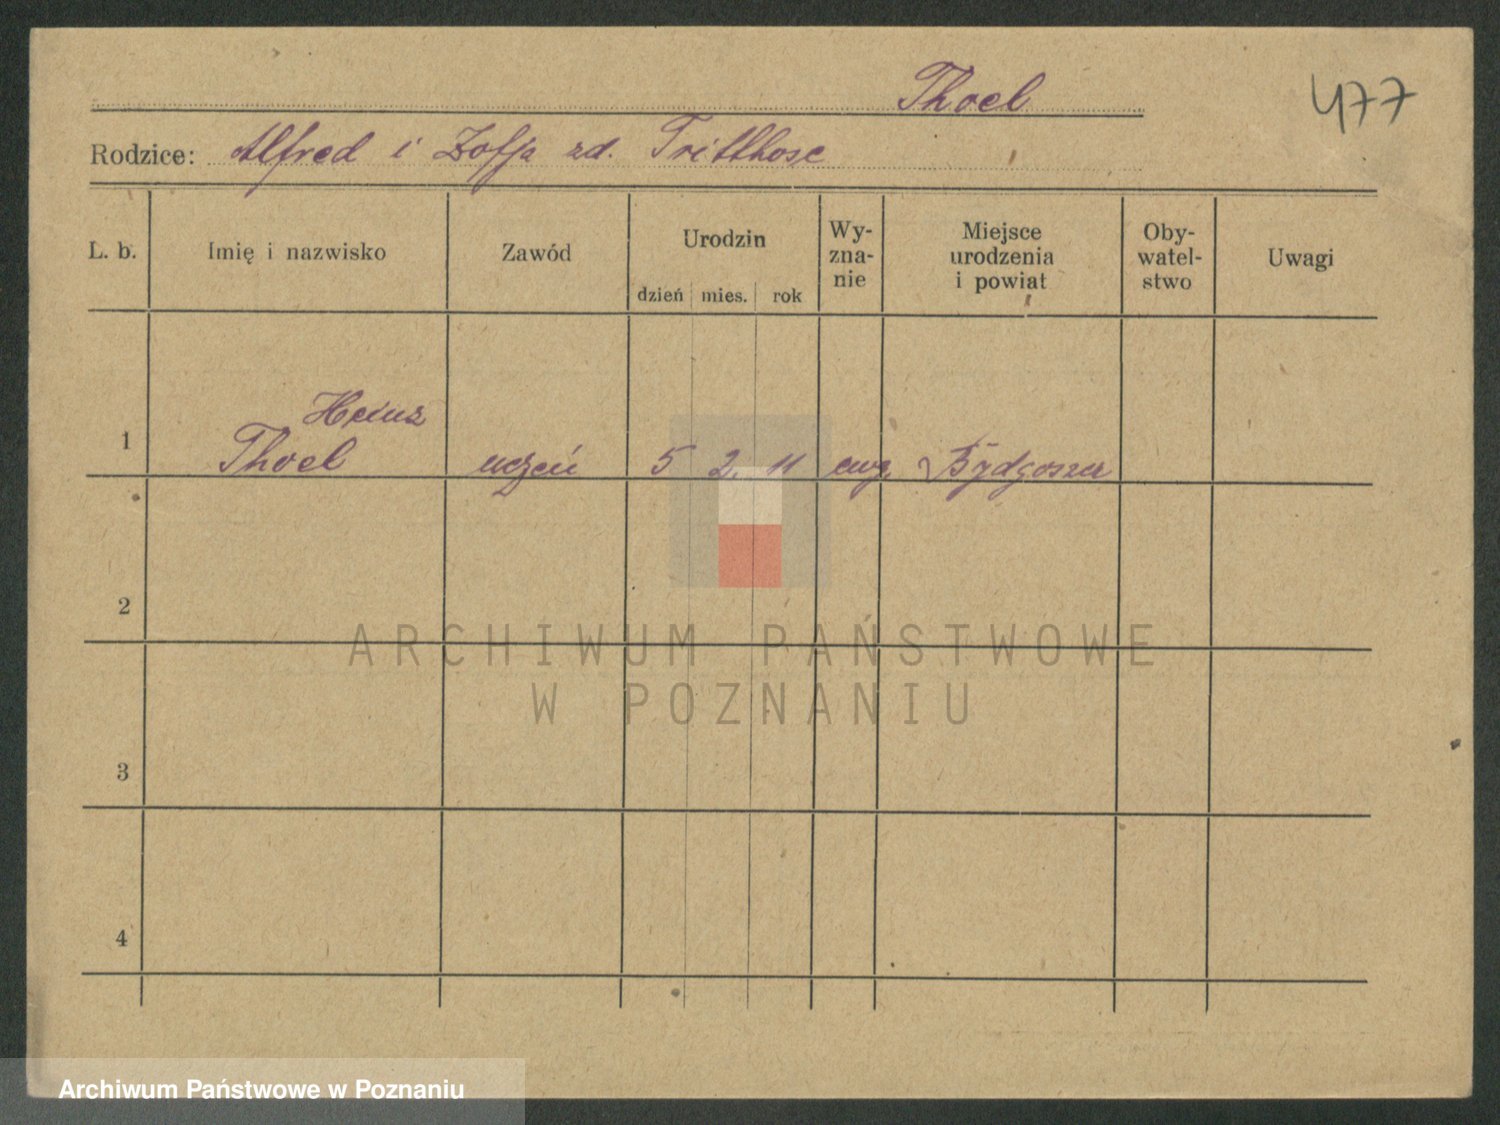 Thoel
477
Rodzice: Alfred i Zofja zd. Tritthose
L. b.
Imię i nazwisko
Zawód
Urodzin
dzień mies. rok
Wy-
zna-
nie
Miejsce
urodzenia
i powiat
Oby-
watel-
stwo
Uwagi
Heinz
1 Thoel uczeń 5 2. 11 ewg. Bydgoszcz
2
3
4
ARCHIWUM PAŃSTWOWE
W POZNANIU
Archiwum Państwowe w Poznaniu